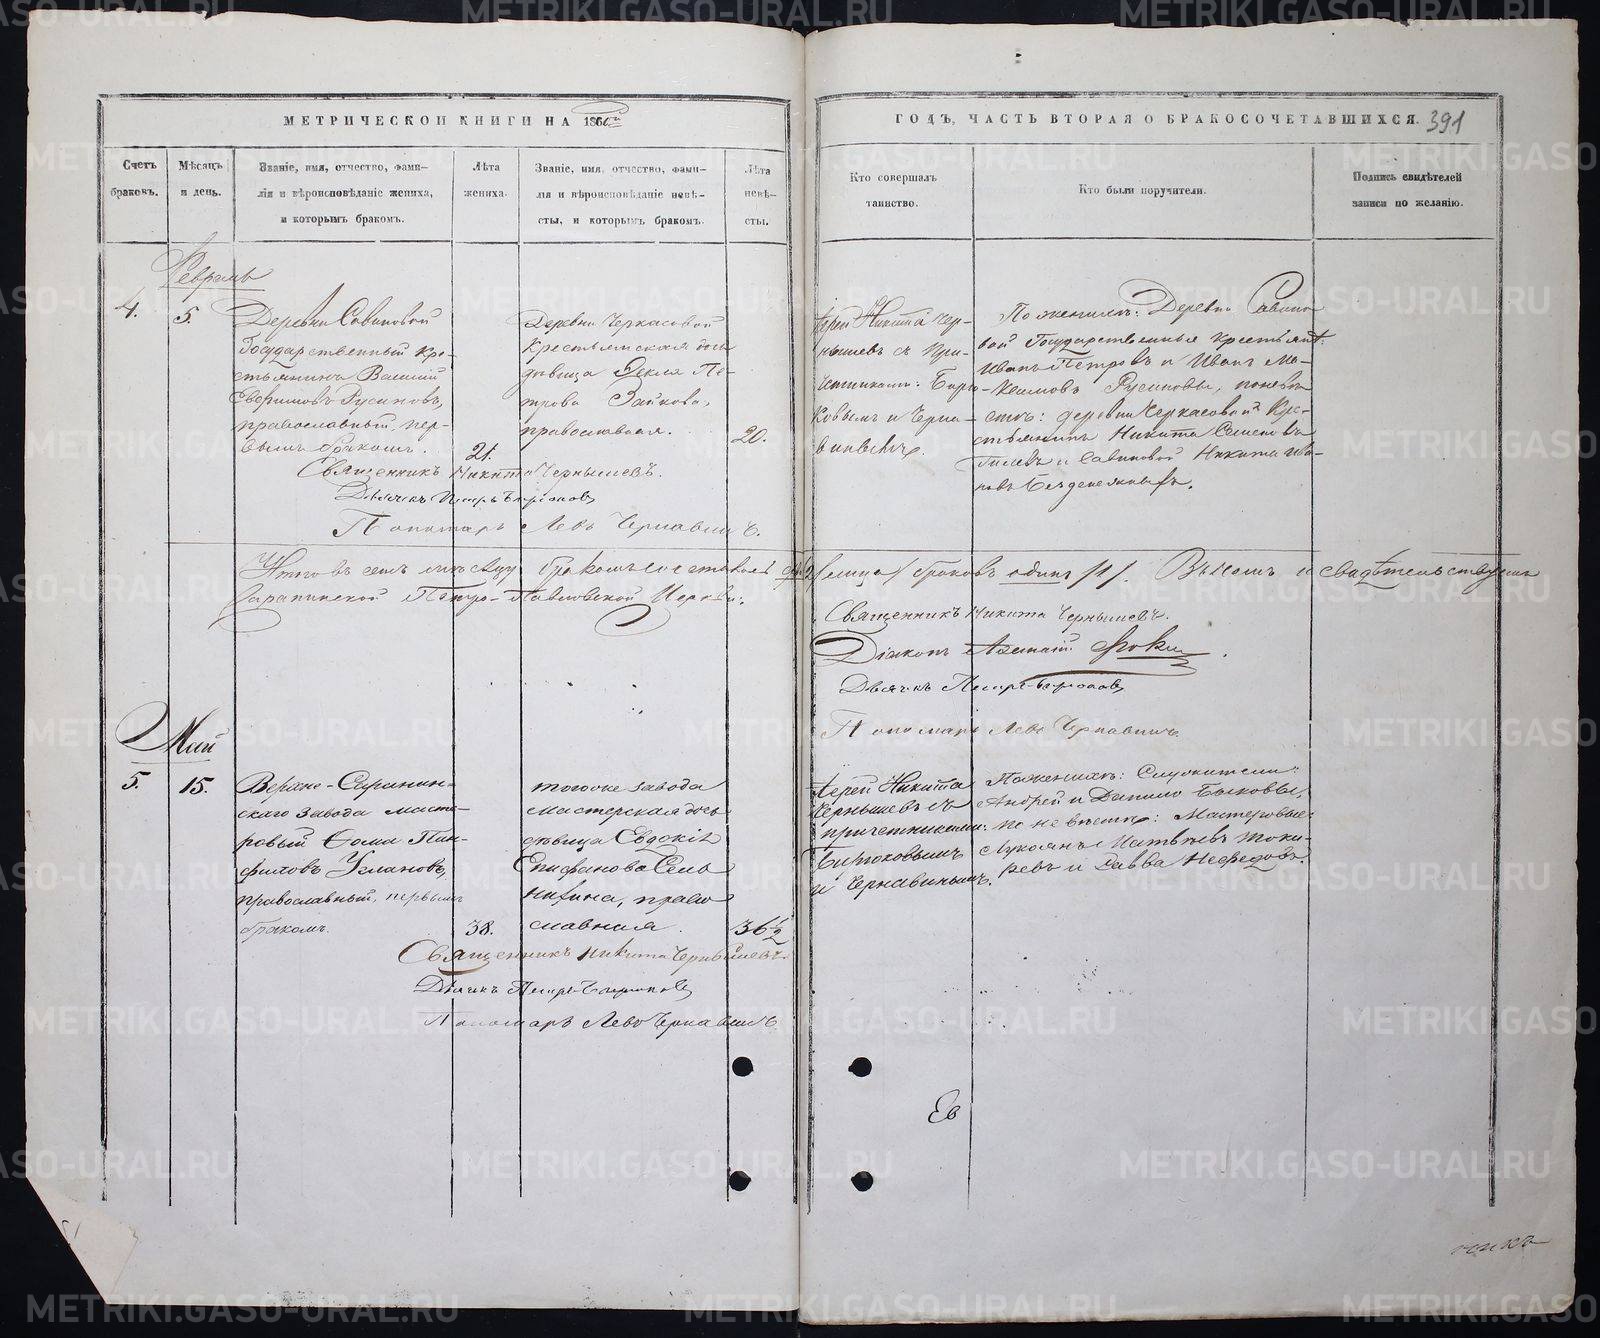 МЕТРИЧЕСКОЙ КНИГИ НА 186
ГОДЪ, ЧАСТЬ ВТОРАЯ О БРАКОСОЧЕТАВШИХСЯ.
391
Счетъ
браковъ.
Мѣсяцъ
и день.
Званіе, имя, отчество, фами-
лія и вѣроисповѣданіе жениха,
и которымъ бракомъ.
Лѣта
жениха.
Званіе, имя, отчество, фами-
лія и вѣроисповѣданіе невѣ-
сты, и которымъ бракомъ.
Лѣта
невѣ-
сты.
Кто совершалъ
таинство.
Кто были поручители.
Подпись свидѣтелей
записи по желанію.
Февраль
4.
5.
Деревни Савиновой
Государственный кре-
стьянинъ Василій
Русиновъ,
православный, пер-
вымъ бракомъ.
21.
Деревни Черкасовой
крестьянская дочь
дѣвица Фекла Пе-
трова Зайкова,
православная.
20.
Іерей Никита Чер-
нышевъ съ при-
четниками: Бирю-
ковымъ и Черна-
винымъ.
По женихѣ: Деревни Савино-
вой Государственные крестьяне:
Иванъ Петровъ и Иванъ Ма-
ксимовъ Русиновы, по невѣ-
стѣ: деревни Черкасовой кре-
стьянинъ Никита Семеновъ
и Савиновой Никита Ива-
новъ
Священникъ Никита Чернышевъ.
Дьячекъ Петръ Бирюковъ
Пономарь Левъ Чернавинъ.
Итого въ семъ мѣсяцѣ бракомъ сочеталось два /2/ лица, браковъ одинъ /1/. Въ томъ и свидѣтельствуемъ
Саранинской Петро-Павловской Церкви:
Священникъ Никита Чернышевъ.
Діаконъ
Дьячекъ Петръ Бирюковъ
Пономарь Левъ Чернавинъ.
Май
5.
15.
Верхне-Саранин-
скаго завода масте-
ровый Фома Пан-
филовъ Улановъ,
православный, первымъ
бракомъ.
38.
того же завода
мастерская дочь
дѣвица Евдокія
Епифанова Сель-
никина, право-
славная.
36½
Іерей Никита
Чернышевъ съ
причетниками:
Бирюковымъ
и Чернавинымъ.
По женихѣ: Служители:
Андрей и Данило Быковы,
по невѣстѣ: Мастеровые:
Лукоянъ Матвѣевъ Токи-
ревъ и Савва Нефедовъ.
Священникъ Никита Чернышевъ.
Дьячекъ Петръ Бирюковъ
Пономарь Левъ Чернавинъ
METRIKI.GASO-URAL.RU